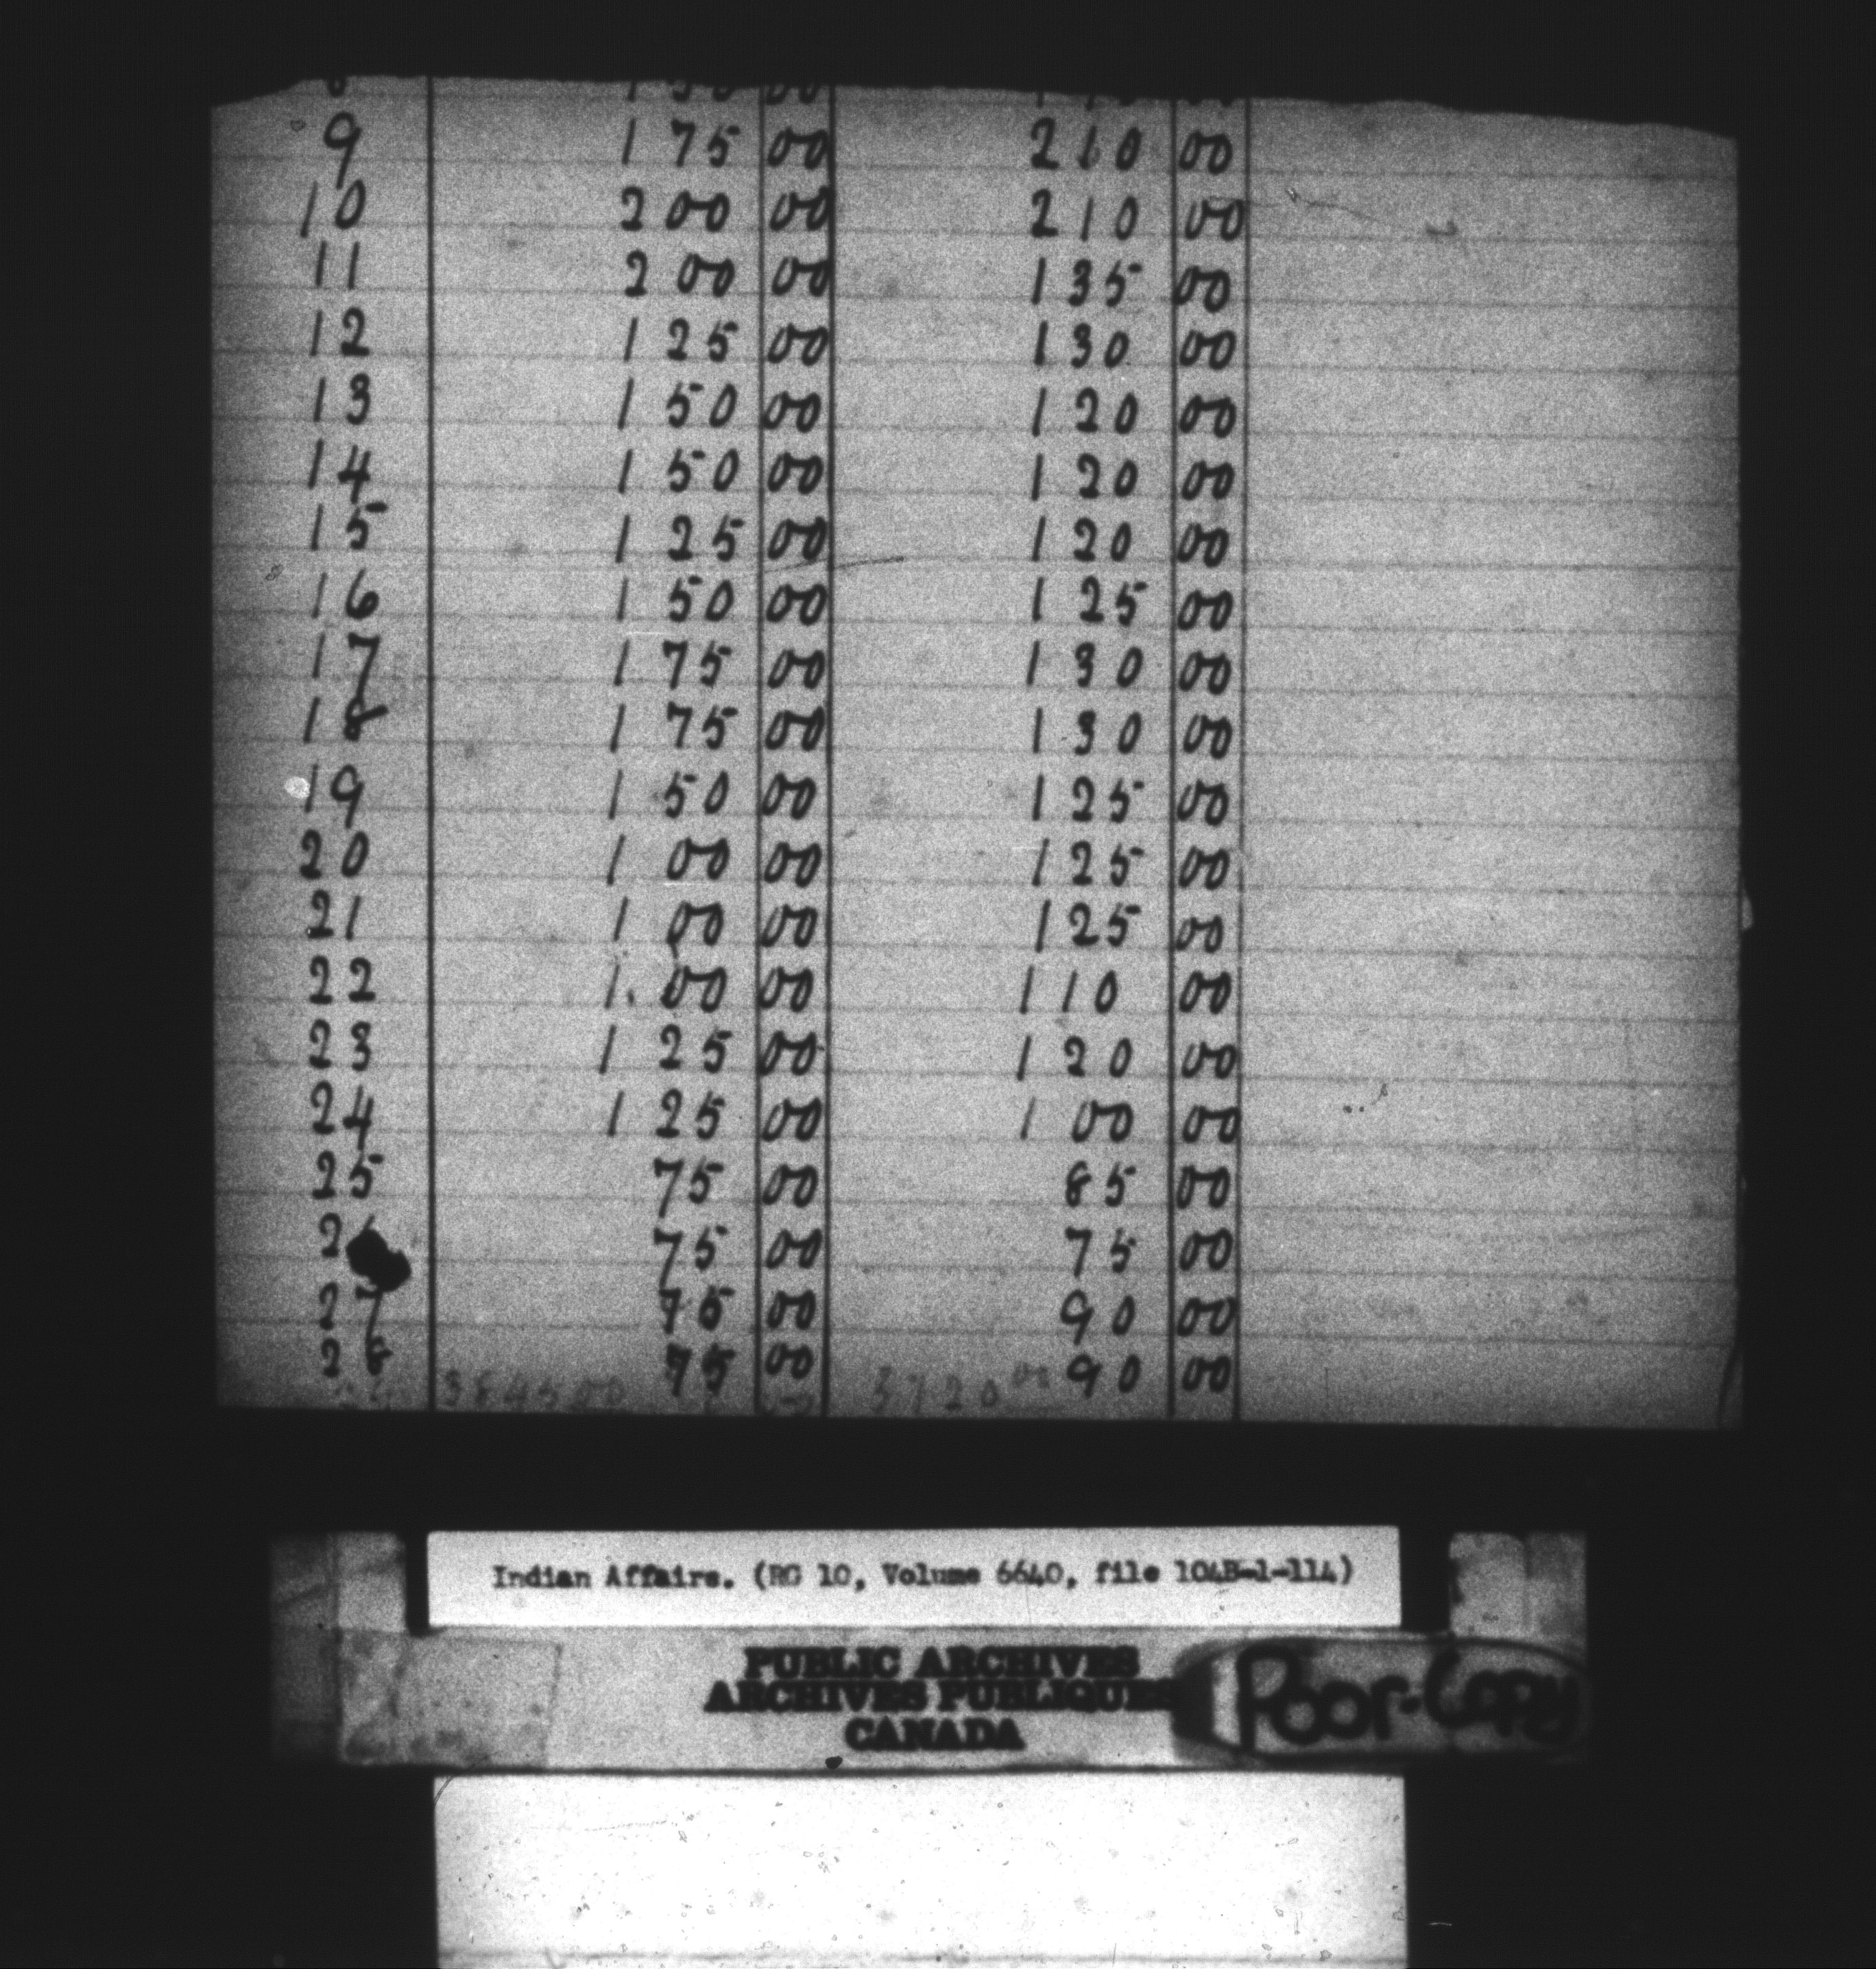 9 175 00 210 00
10 200 00 210 00
11 200 00 135 00
12 125 00 130 00
13 150 00 120 00
14 150 00 120 00
15 125 00 120 00
16 150 00 125 00
17 175 00 130 00
18 175 00 130 00
19 150 00 125 00
20 100 00 125 00
21 100 00 125 00
22 100 00 110 00
23 125 00 120 00
24 125 00 100 00
25 75 00 85 00
2 75 00 75 00
27 75 00 90 00
28 75 00 90 00
3845 00 3720 00
Indian Affairs. (RG 10, Volume 6640, file 104B-1-114)
PUBLIC ARCHIVES
ARCHIVES PUBLIQUES
CANADA
Poor-Copy